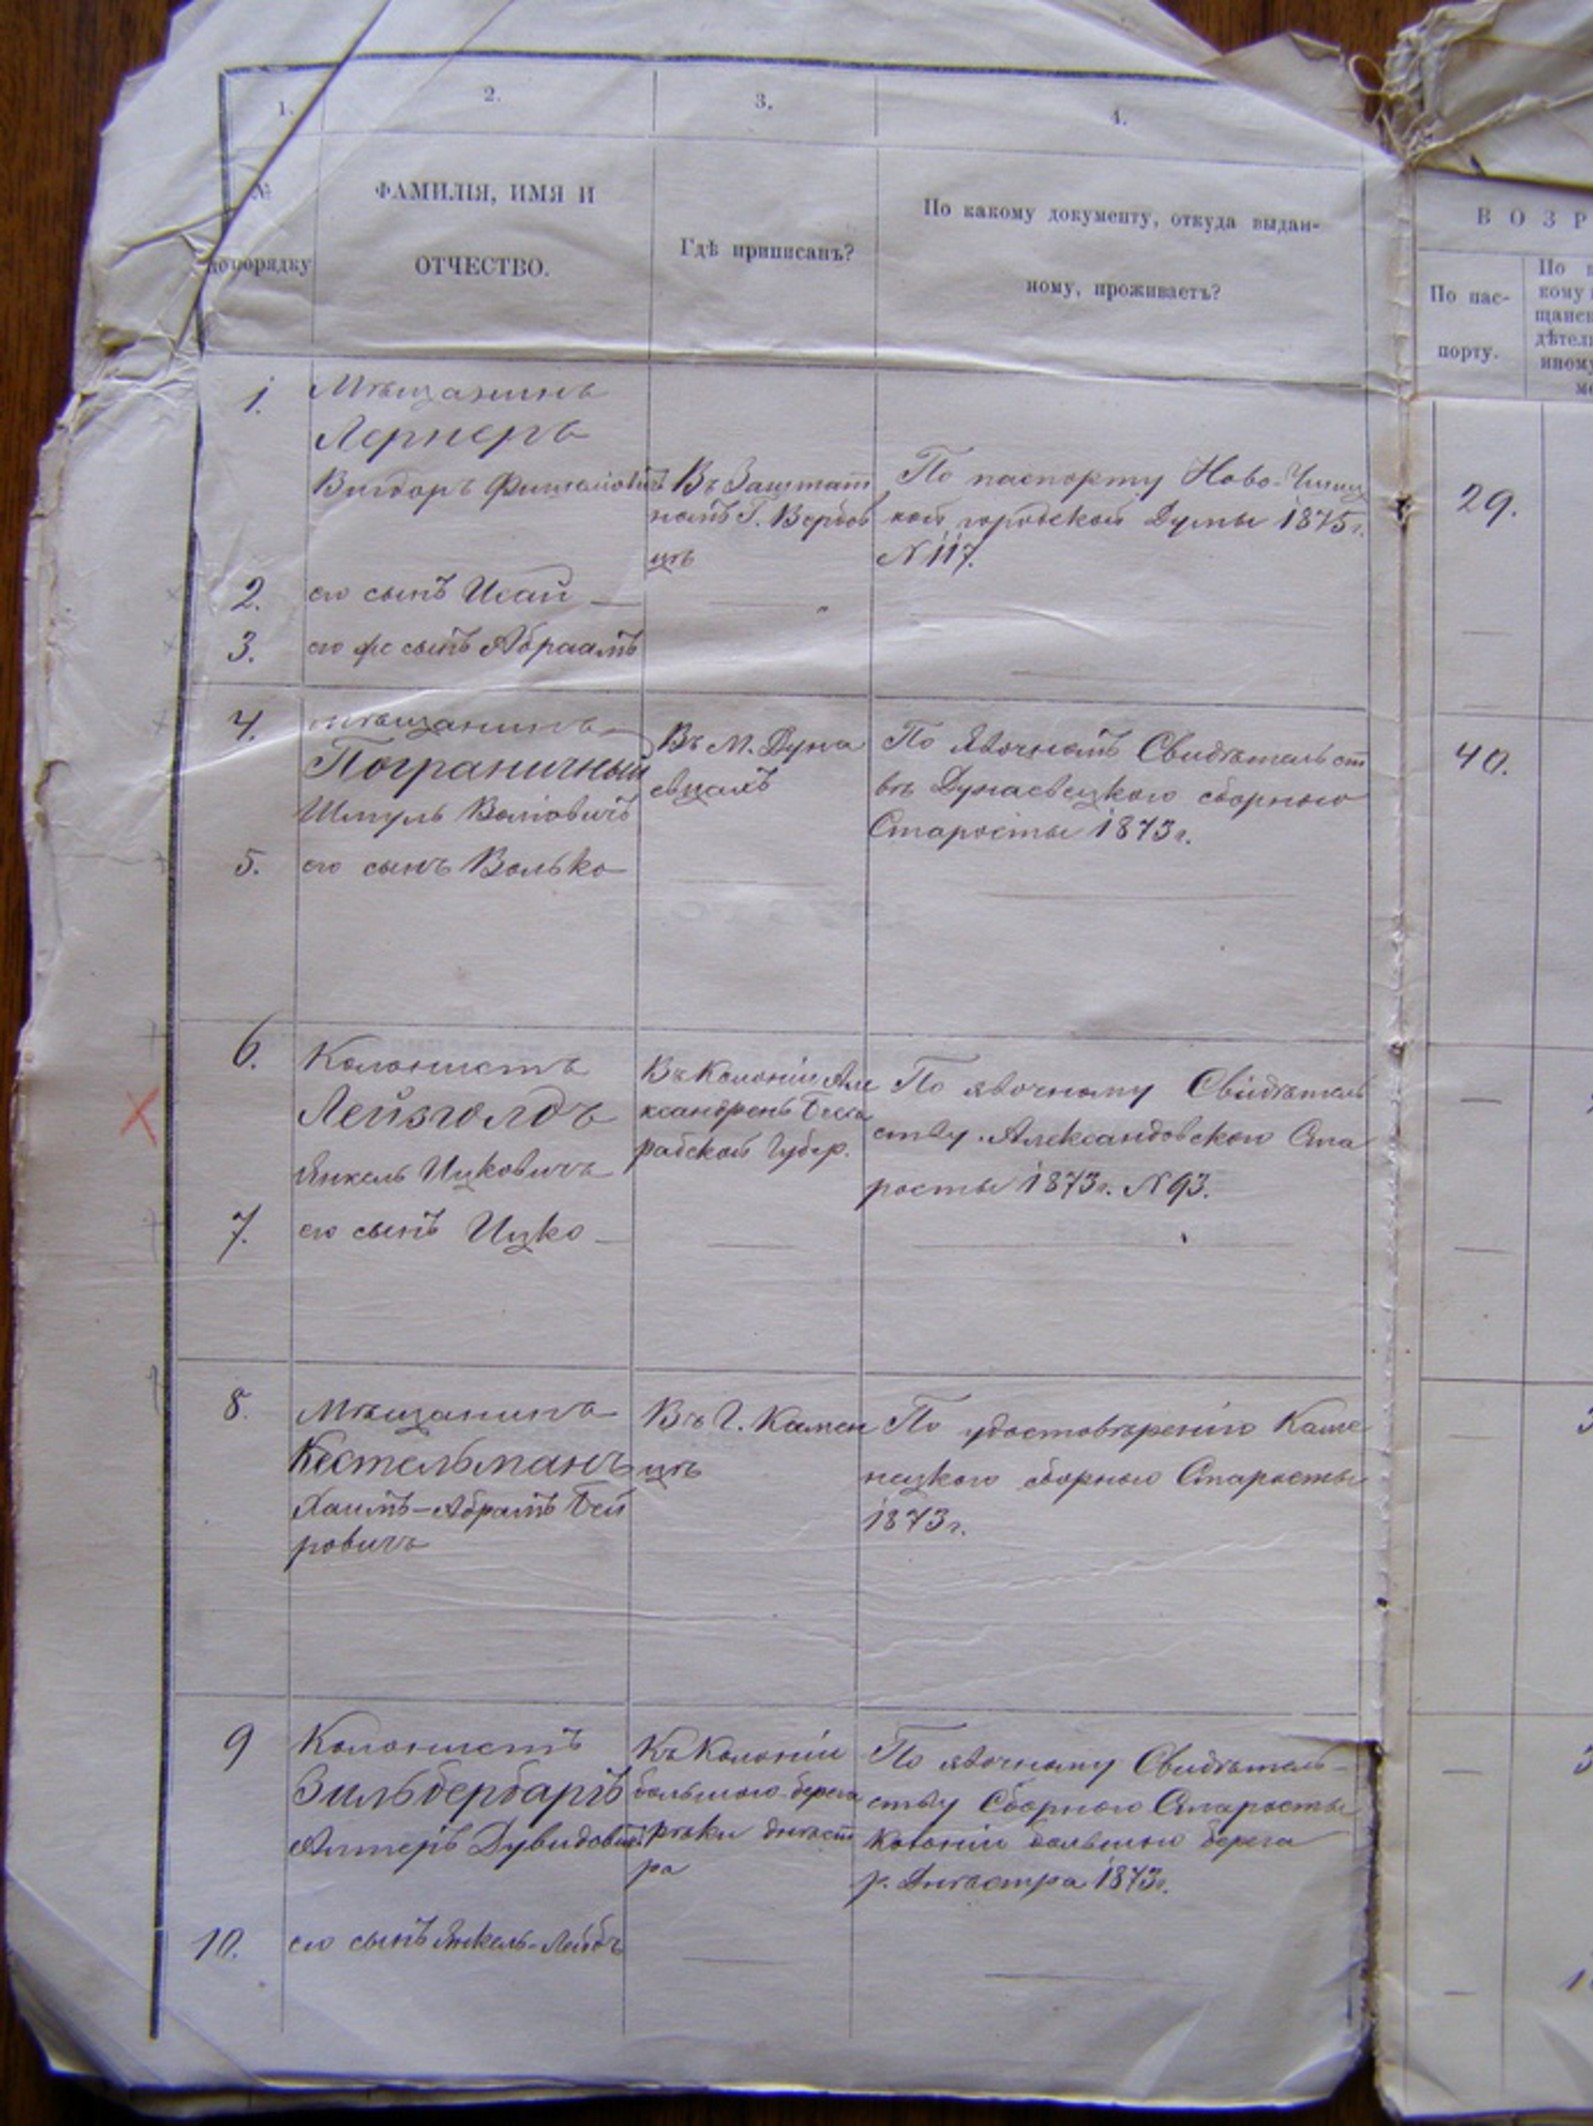 1.
2.
3.
4.
№
по порядку
ФАМИЛІЯ, ИМЯ И
ОТЧЕСТВО.
Гдѣ приписанъ?
По какому документу, откуда выдан-
ному, проживаетъ?
ВОЗР
По пас-
порту.
По
кому
щанск
дѣтел
иному
1.
Мѣщанинъ
Лернеръ
Вигдоръ Фишелювичъ
Въ Заштат
номъ Г. Вербов
цѣ
По паспорту Ново-
кой городской Думы 1875 г.
N 117.
29.
2.
его сынъ Исай —
3.
его же сынъ Абраамъ
4.
мѣщанинъ
Пограничный
Шмуль Волковичъ
Въ М. Дуна
евцахъ
По Явочномъ Свидѣтельст
вѣ Дунаевецкого сборного
Старосты 1873 г.
40.
5.
его сынъ Волько
6.
Колонистъ
Лейзголдъ
Янкель Ицковичъ
Въ Колоніи Але
ксандрень Бесса
рабской Губер.
По явочному Свидѣтель
ству Александовского Ста
росты 1873 г. N 93.
7.
его сынъ Ицко —
8.
Мѣщанинъ
Кестельманъ
Хаимъ-Абрамъ Бей
ровичъ
Въ Г. Камен
цѣ
По удостовѣренію Каме
нецкого сборного Старосты
1873 г.
9
Колонистъ
Зильбербаргъ
Алтеръ Дувидовичъ
Къ Колоніи
большого берега
рѣки днѣст
ра
По явочному Свидѣтель-
ству Сборного Старосты
Колоніи большого берега
р. Днѣстра 1873 г.
10.
его сынъ Янкель-Лейбъ